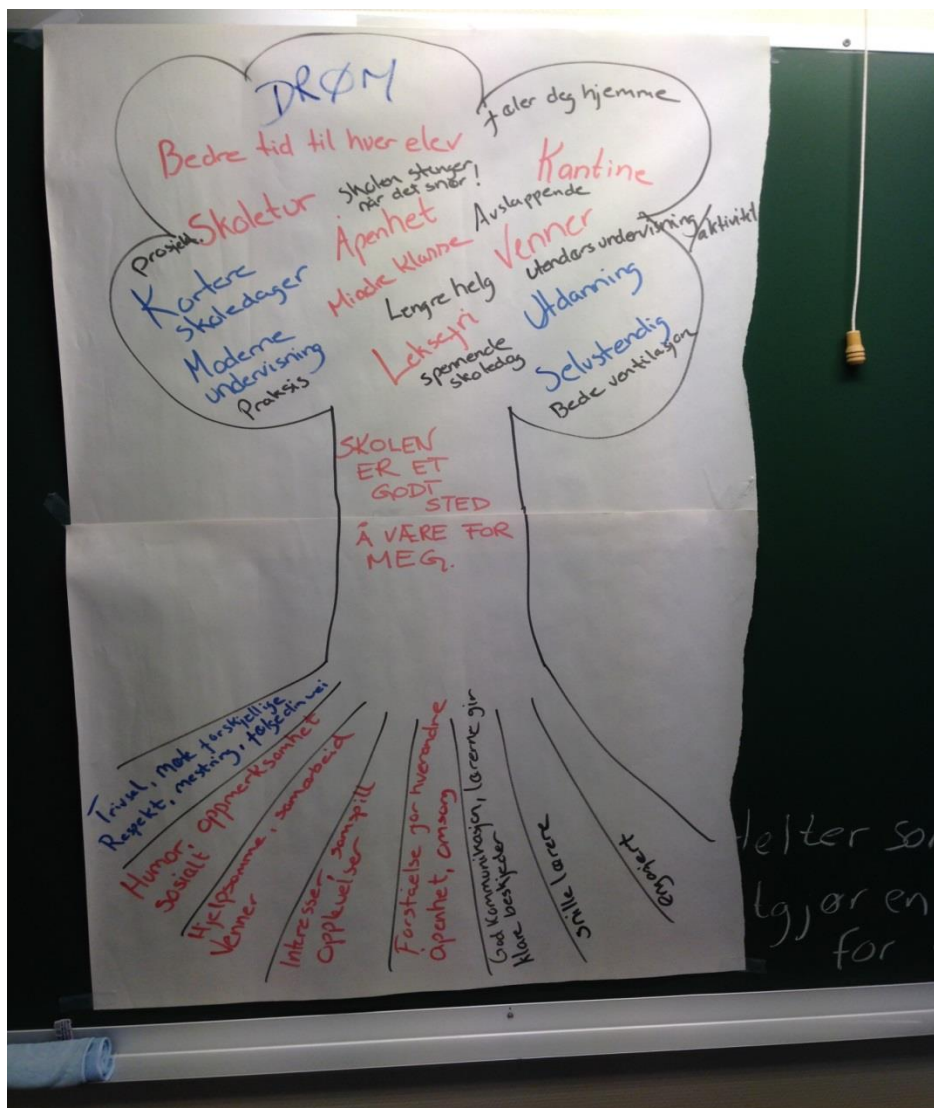 DRØM
føler deg hjemme
Bedre tid til hver elev
Kantine
Skolen stenger
når det snør!
Skoletur
Avslappende
Åpenhet
prosjekt.
Venner
Mindre klasse
utendørsundervisning/
aktivitet
Kortere
skoledager
Lengre helg
Utdanning
Leksefri
Moderne
undervisning
spennende
skoledag
Selvstendig
Praksis
Bede ventilasjon
SKOLEN
ER ET
GODT
STED
Å VÆRE FOR
MEG.
Trivsel, møte forskjellige
Respekt, mestring, følge din vei
Humor,
sosialt, oppmerksomhet
Hjelpsomme, samarbeid
Venner
Interesser, samspill
Opplevelser
Forståelse for hverandre
åpenhet, omsorg
God kommunikasjon, lærerne gir
klare beskjeder
snille lærere
engasjert
Helter som
gjør en
for